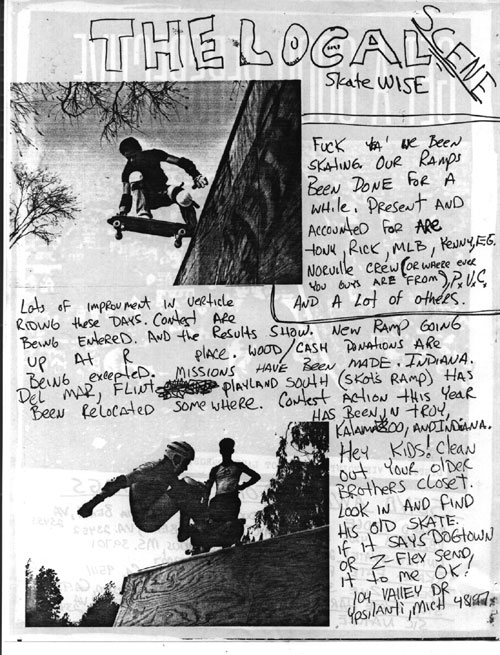 THE LOCAL SCENE
Skate WISE
FUCK YA' WE BEEN
SKATING. OUR RAMPS
BEEN DONE FOR A
WHILE. PRESENT AND
ACCOUNTED FOR ARE
TONY, RICK, MLB, KENNY, E.G.
NORVILLE CREW (OR WHERE EVER
YOU GUYS ARE FROM), P.V.C.
AND A LOT OF OTHERS.
LOTS OF IMPROVMENT IN VERTICLE
RIDING these DAYS. CONTEST ARE
BEING ENTERED. AND the RESULTS SHOW. NEW RAMP GOING
UP AT R PLACE. WOOD/CASH DONATIONS ARE
BEING EXCEPTED. MISSIONS HAVE BEEN MADE. INDIANA.
DEL MAR, FLINT PLAYLAND SOUTH (SKOT'S RAMP) HAS
BEEN RELOCATED SOME WHERE. CONTEST ACTION THIS YEAR
HAS BEEN IN TROY,
KALAMAZOO, AND INDIANA.
HEY KIDS! CLEAN
OUT YOUR OLDER
BROTHERS CLOSET.
LOOK IN AND FIND
HIS OLD SKATE.
If it SAYS DOGTOWN
OR Z-FLEX SEND
it to ME OK!
104 VALLEY DR
YPSILANTI, MICH